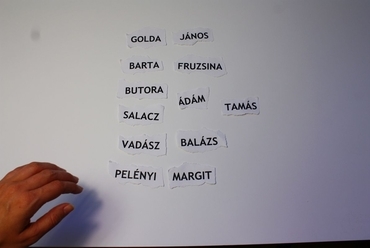 GOLDA JÁNOS
BARTA FRUZSINA
BUTORA ÁDÁM TAMÁS
SALACZ
VADÁSZ BALÁZS
PELÉNYI MARGIT